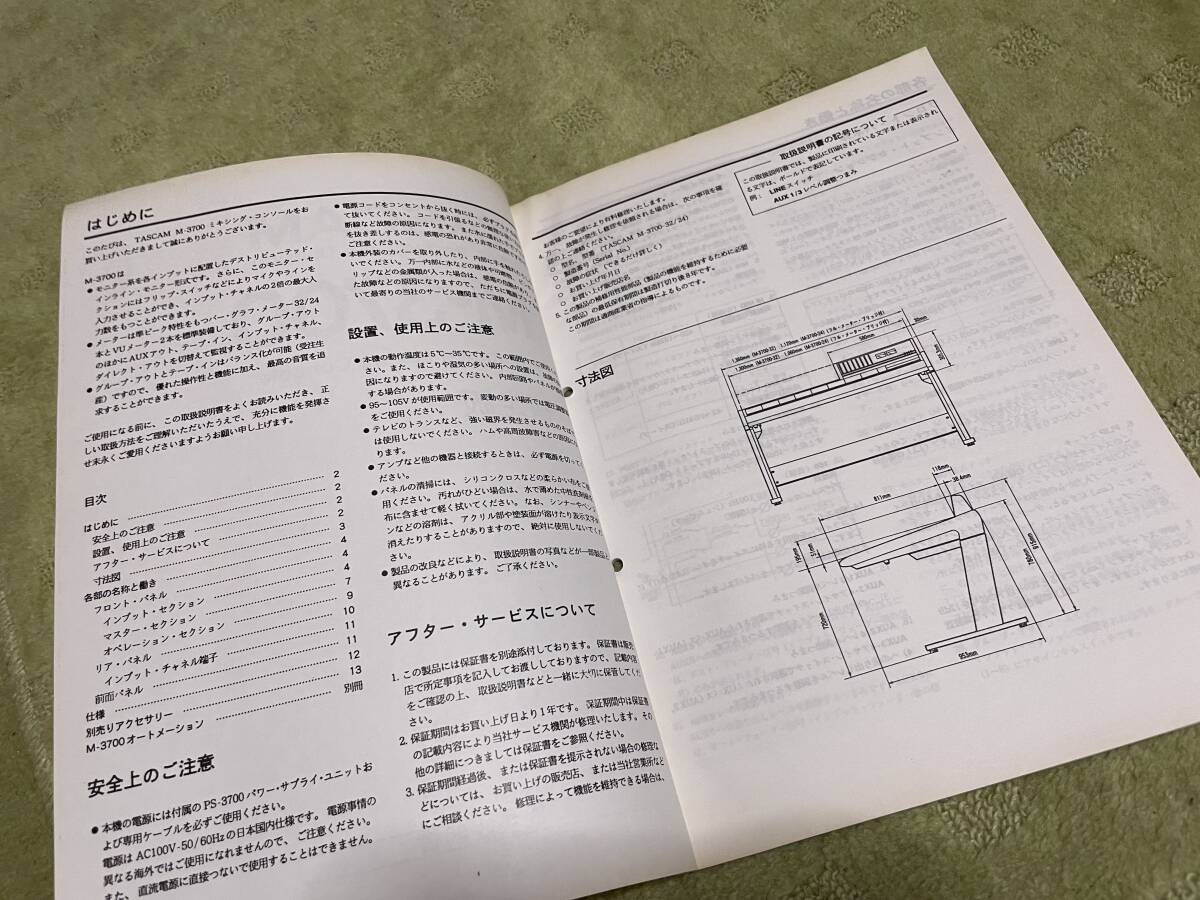 はじめに
このたびは、TASCAM M-3700 ミキシング・コンソールをお
買い上げいただきまして誠にありがとうございます。
M-3700は
● モニター系を各インプットに配置したデストリビューテッド・
インライン・モニター形式です。さらに、このモニター・セ
クションにはフリップ・スイッチなどによりマイクやラインを
入力させることができ、インプット・チャネルの2倍の最大入
力数をもつことができます。
● メーターは準ピーク特性をもつバー・グラフ・メーター32/24
本とVUメーター2本を標準装備しており、グループ・アウト
のほかにAUXアウト、テープ・イン、インプット・チャネル、
ダイレクト・アウトを切替えて監視することができます。
● グループ・アウトとテープ・インはバランス化が可能(受注生
産)ですので、優れた操作性と機能に加え、最高の音質を追
求することができます。
ご使用になる前に、この取扱説明書をよくお読みいただき、正
しい取扱方法をご理解いただいたうえで、充分に機能を発揮さ
せ末永くご愛用くださいますようお願い申し上げます。
目次
はじめに 2
安全上のご注意 2
設置、使用上のご注意 2
アフター・サービスについて 2
寸法図 3
各部の名称と働き 4
フロント・パネル 4
インプット・セクション 4
マスター・セクション 7
オペレーション・セクション 9
リア・パネル 10
インプット・チャネル端子 11
前面パネル 11
仕様 12
別売りアクセサリー 13
M-3700オートメーション 別冊
安全上のご注意
● 本機の電源には付属の PS-3700 パワー・サプライ・ユニットお
よび専用ケーブルを必ずご使用ください。
電源は AC100V-50/60Hzの日本国内仕様です。電源事情の
異なる海外ではご使用になれませんので、ご注意ください。
また、直流電源に直接つないで使用することはできません。
● 電源コードをコンセントから抜く時には、必ず
て抜いてください。コードを引張るなどの無理な
断線など故障の原因になります。また水に濡れた手で
を抜き差しするのは、感電の恐れがあり非常に危険
ご注意ください。
● 本機外装のカバーを取り外したり、内部に手を触れ
いでください。万一内部に水などの液体や印刷物、
リップなどの金属類が入った場合は、感電の危険が
た故障などの原因になりますので、ただちに電源プラ
いて最寄りの当社のサービス機関までご連絡くださ
設置、使用上のご注意
● 本機の動作温度は5℃～35℃です。この範囲内でご使用
さい。また、ほこりや湿気の多い場所への設置は、故障の
因になりますので避けてください。内部回路やパネルが
する場合があります。
● 95～105Vが使用範囲です。変動の多い場所では電圧調整
をご使用ください。
● テレビのトランスなど、強い磁界を発生させるもののそば
は使用しないでください。ハムや高周波障害などの原因に
ります。
● アンプなど他の機器と接続するときは、必ず電源を切って
ださい。
● パネルの清掃には、シリコンクロスなどの柔らかい布をご
用ください。汚れがひどい場合は、水で薄めた中性洗剤
布に含ませて軽く拭いてください。なお、シンナーやベン
ンなどの溶剤は、アクリル部や塗装面が溶けたり表示文字
消えたりすることがありますので、絶対に使用しないでく
さい。
● 製品の改良などにより、取扱説明書の写真などが一部製品と
異なることがあります。ご了承ください。
アフター・サービスについて
1. この製品には保証書を別途添付しております。保証書は販売
店で所定事項を記入してお渡ししておりますので、記載内容
をご確認の上、取扱説明書などと一緒に大切に保管してくだ
さい。
2. 保証期間はお買い上げ日より1年です。保証期間中は保証書
の記載内容により当社サービス機関が修理いたします。その
他の詳細につきましては保証書をご参照ください。
3. 保証期間経過後、または保証書を提示されない場合の修理な
どについては、お買い上げの販売店、または当社営業所など
にご相談ください。修理によって機能を維持できる場合は、
お客様のご要望により有料修理いたします。
4. 万一、故障が発生し修理を依頼される場合は、次の事項を確
認の上ご連絡ください。
○ 型名、型番(TASCAM M-3700-32/24)
○ 製品番号(Serial No.)
○ 故障の症状(できるだけ詳しく)
○ お買い上げ年月日
○ お買い上げ販売店名
5. この製品の補修用性能部品(製品の機能を維持するために必要
な部品)の最低保有期間は製造打切り後8年です。
この期間は通商産業省の指導によるものです。
取扱説明書の記号について
この取扱説明書では、製品に印刷されている文字または表示され
る文字は、ボールドで表記しています。
例: LINEスイッチ
AUX 1/3 レベル調整つまみ
寸法図
580mm
118mm
38.4mm
811mm
953mm
1